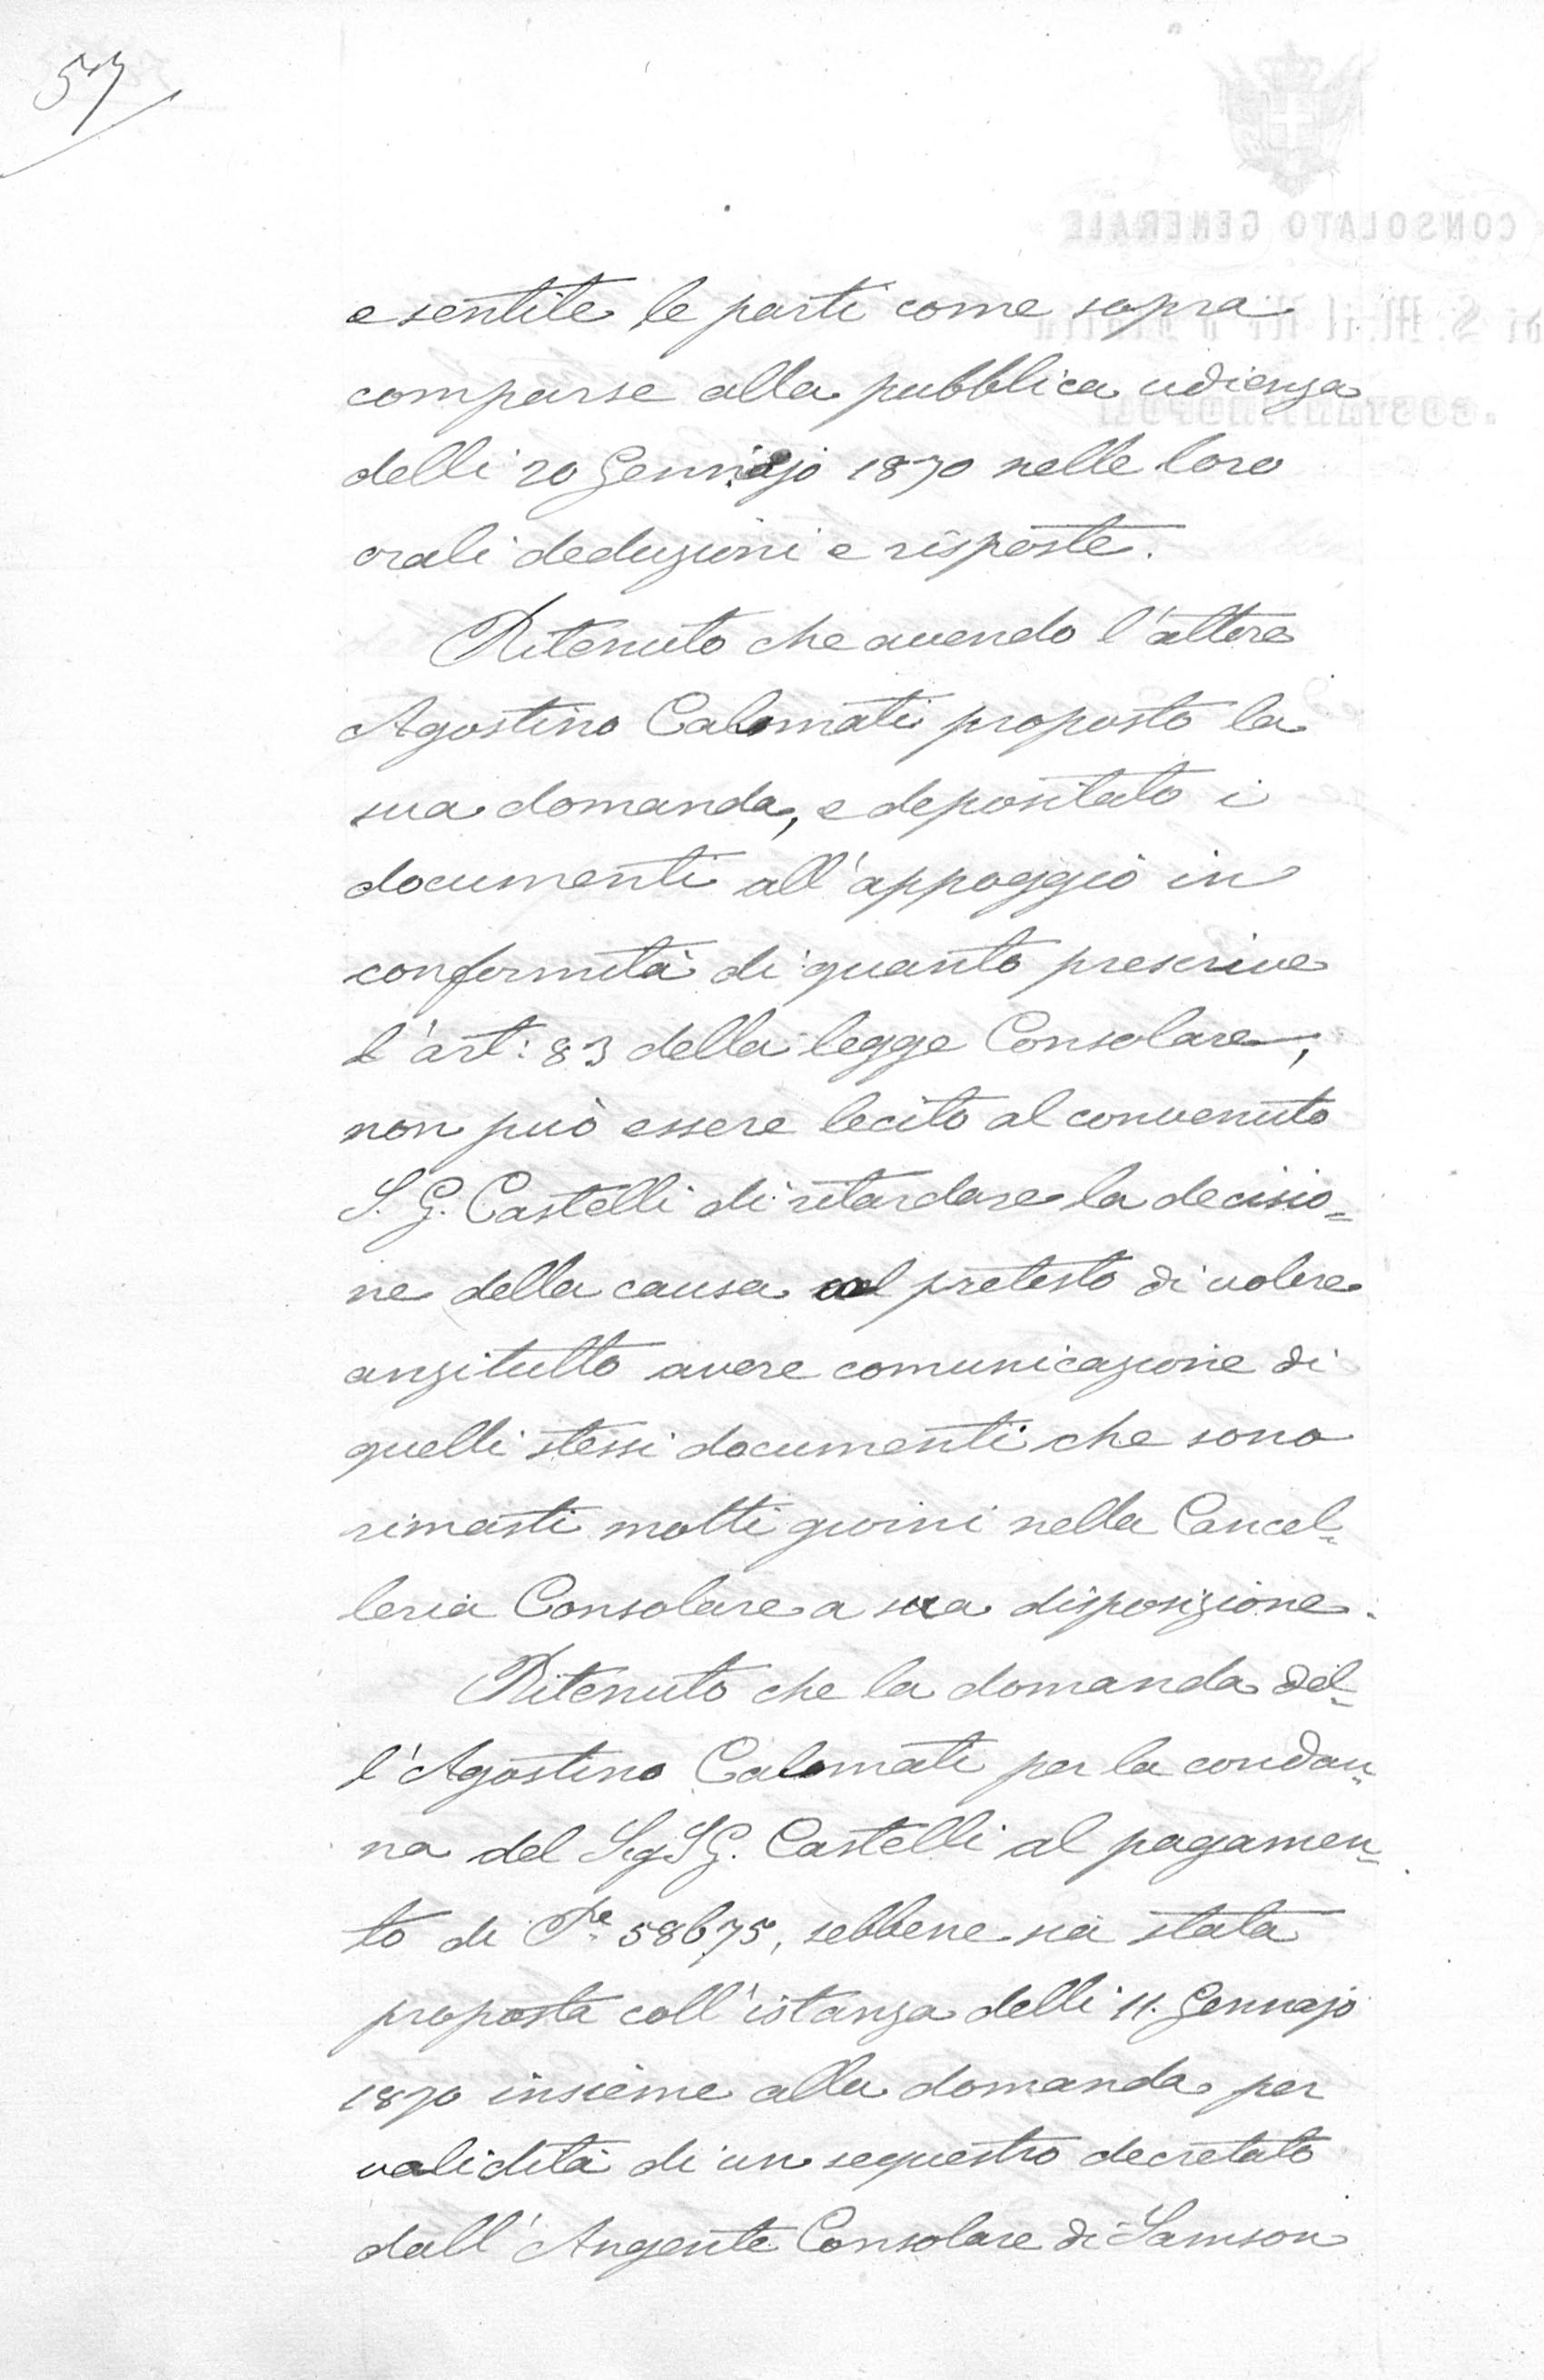 57
e sentite le parti come sopra
comparse alla pubblica udienza
delli 20 Gennajo 1870 nelle loro
orali deduzioni e risposte.
Ritenuto che avendo l'attore
Agostino Calomati proposto la
sua domanda, e depositato i
documenti all'appoggio in
conformità di quanto prescrive
l'art: 83 della legge Consolare,
non può essere lecito al convenuto
S. G. Castelli di ritardare la decisio=
ne della causa col pretesto di volere
anzitutto avere comunicazione di
quelli stessi documenti che sono
rimasti molti giorni nella Cancel=
leria Consolare a sua disposizione.
Ritenuto che la domanda del=
l'Agostino Calomati per la condan=
na del Sig S G. Castelli al pagamen=
to di P.re 58675, sebbene sia stata
proposta coll'istanza delli 11. Gennajo
1870 insieme alla domanda per
validità di un sequestro decretato
dall'Angente Consolare di Samson
CONSOLATO GENERALE
di S. M. il Re d'Italia
COSTANTINOPOLI.